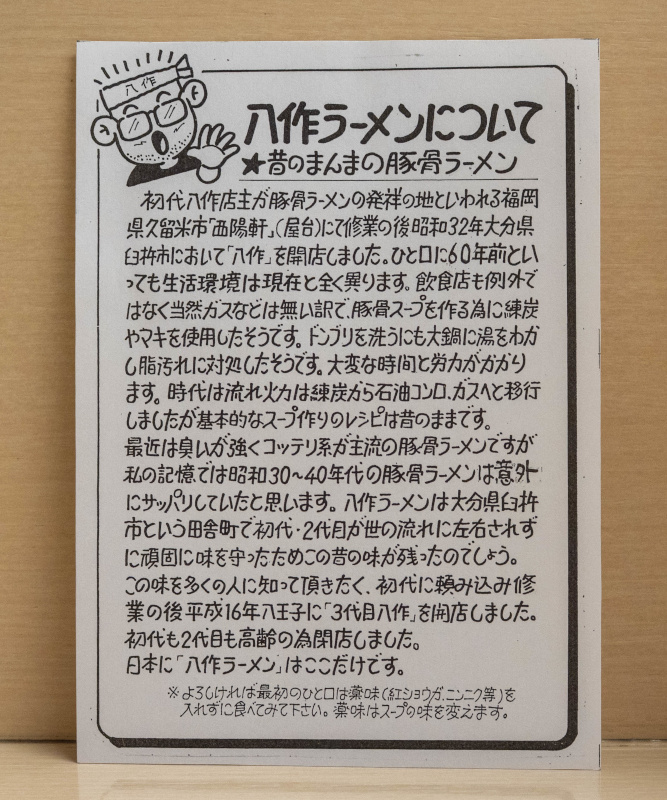 八作
八作ラーメンについて
★昔のまんまの豚骨ラーメン
初代八作店主が豚骨ラーメンの発祥の地といわれる福岡
県久留米市「西陽軒」(屋台)にて修業の後昭和32年大分県
臼杵市において「八作」を開店しました。ひと口に60年前とい
っても生活環境は現在と全く異ります。飲食店も例外で
はなく当然ガスなどは無い訳で、豚骨スープを作る為に練炭
やマキを使用したそうです。ドンブリを洗うにも大鍋に湯をわか
し脂汚れに対処したそうです。大変な時間と労力がかかり
ます。時代は流れ火力は練炭から石油コンロ、ガスへと移行
しましたが基本的なスープ作りのレシピは昔のままです。
最近は臭いが強くコッテリ系が主流の豚骨ラーメンですが
私の記憶では昭和30〜40年代の豚骨ラーメンは意外
にサッパリしていたと思います。八作ラーメンは大分県臼杵
市という田舎町で初代・2代目が世の流れに左右されず
に頑固に味を守ったためこの昔の味が残ったのでしょう。
この味を多くの人に知って頂きたく、初代に頼み込み修
業の後平成16年八王子に「3代目八作」を開店しました。
初代も2代目も高齢の為閉店しました。
日本に「八作ラーメン」はここだけです。
※よろしければ最初のひと口は薬味(紅ショウガ、ニンニク等)を
入れずに食べてみて下さい。薬味はスープの味を変えます。